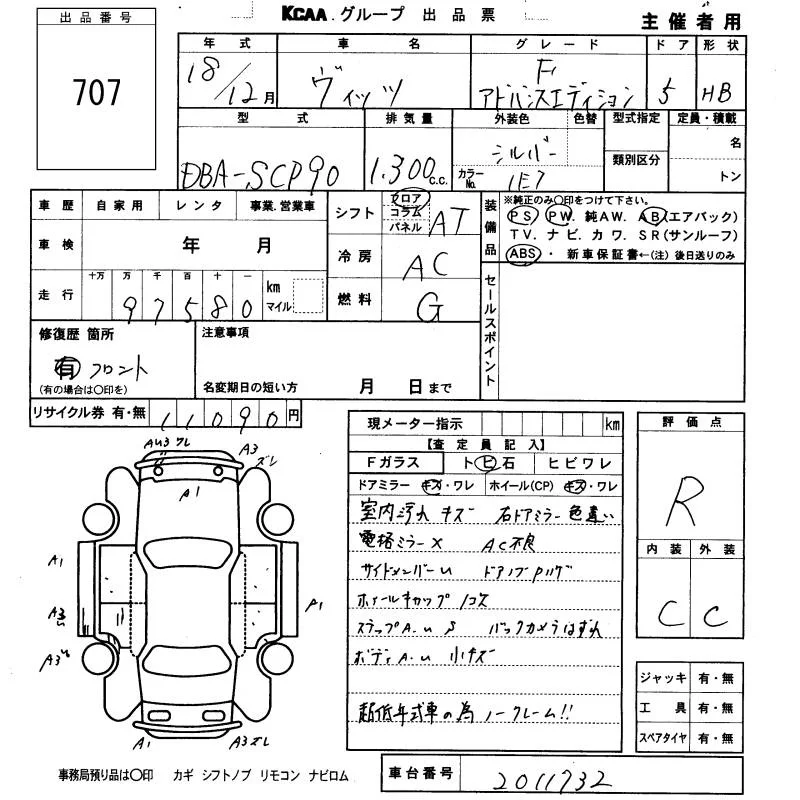 出品番号
707
KCAA.グループ 出品票
主催者用
年式 車名 グレード ドア 形状
18/12月 ヴィッツ F アドバンスエディション 5 HB
型式 排気量 外装色 色替 型式指定 定員・積載
DBA-SCP90 1.300c.c. シルバー カラーNo. 1E7 類別区分 名 トン
車歴 自家用 レンタ 事業.営業車
車検 年 月
走行 十万 万 千 百 十 一 km マイル
97580
シフト フロア コラム パネル AT
冷房 AC
燃料 G
装備品 ※純正のみ〇印をつけて下さい。
PS. PW. 純AW. AB(エアバック)
TV. ナビ. カワ. SR(サンルーフ)
ABS・新車保証書←(注)後日送りのみ
セールスポイント
修復歴 箇所 注意事項
有 フロント
(有の場合は〇印を) 名変期日の短い方 月 日まで
リサイクル券 有・無 11090円
現メーター指示 km
【査定員記入】
Fガラス トビ石 ヒビワレ
ドアミラー キズ・ワレ ホイール(CP) キズ・ワレ
室内汚れ キズ 右ドアミラー色違い
電格ミラーX AC不良
サイドメンバーU ドアノブPハゲ
ホイールキャップ1コ欠
ステップA.U S バックカメラはずれ
ボディA.U 小キズ
超低年式車の為 ノークレーム!!
評価点
R
内装 外装
C C
ジャッキ 有・無
工具 有・無
スペアタイヤ 有・無
AU3 ワレ
A3 ズレ
A1
A1
A3
P1
A3
A1
A3ズレ
事務局預り品は〇印 カギ シフトノブ リモコン ナビロム
車台番号 2011732